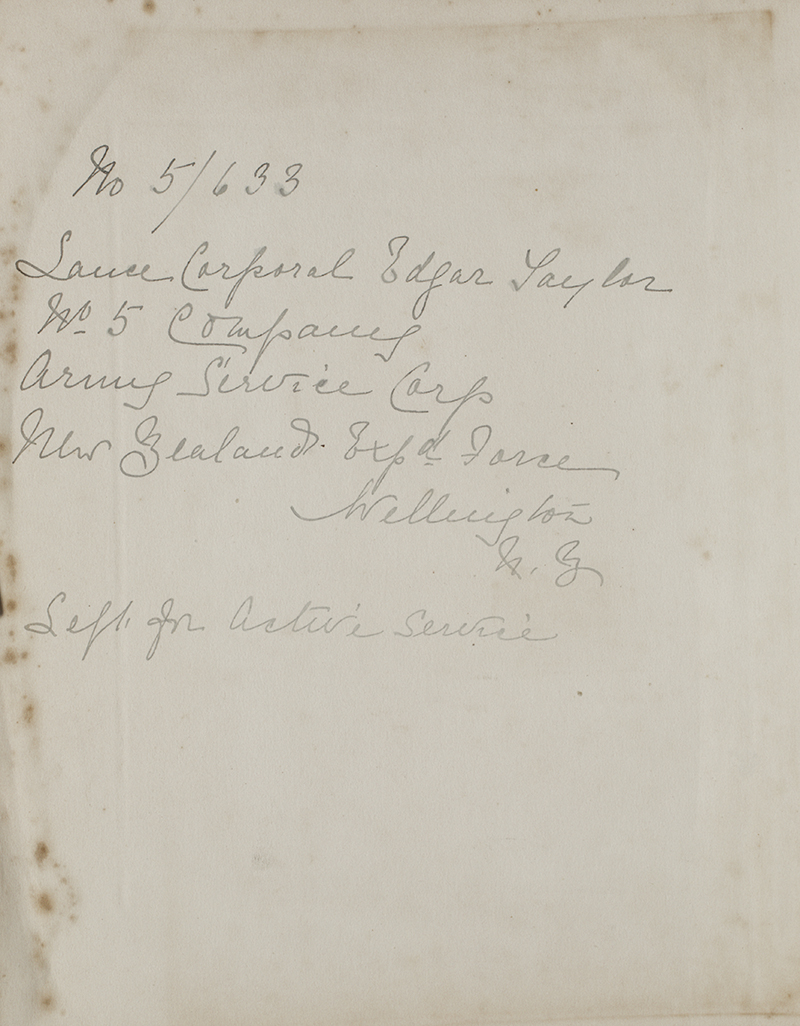 No 5/633
Lance Corporal Edgar Taylor
No 5 Company
Army Service Corp
New Zealand Expd Force
Wellington
N. Z
Left for Active Service